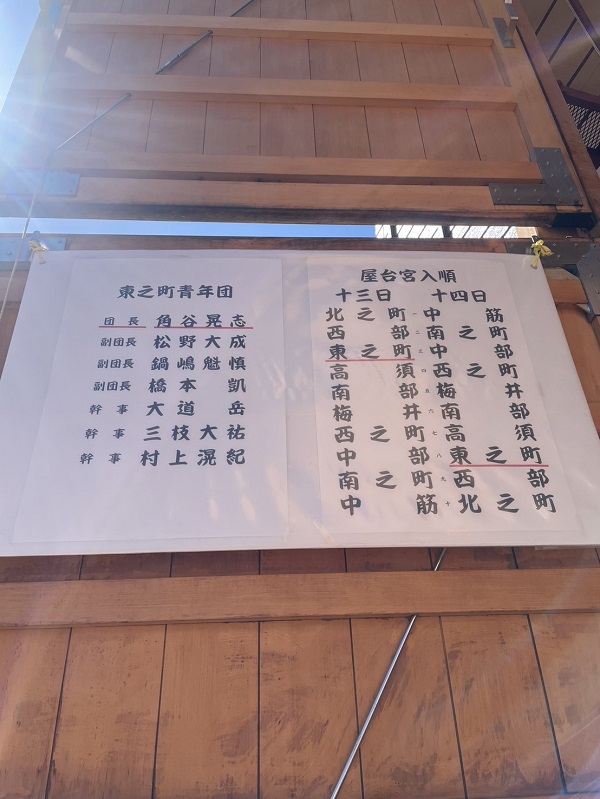 東之町青年団
団長 角谷晃志
副団長 松野大成
副団長 鍋嶋魁慎
副団長 橋本凱
幹事 大道岳
幹事 三枝大祐
幹事 村上滉紀
屋台宮入順
十三日 十四日
北之町 一 中筋
西部 二 南之町
東之町 三 中部
高須 四 西之町
南部 五 梅井
梅井 六 南部
西之町 七 高須
中部 八 東之町
南之町 九 西部
中筋 十 北之町